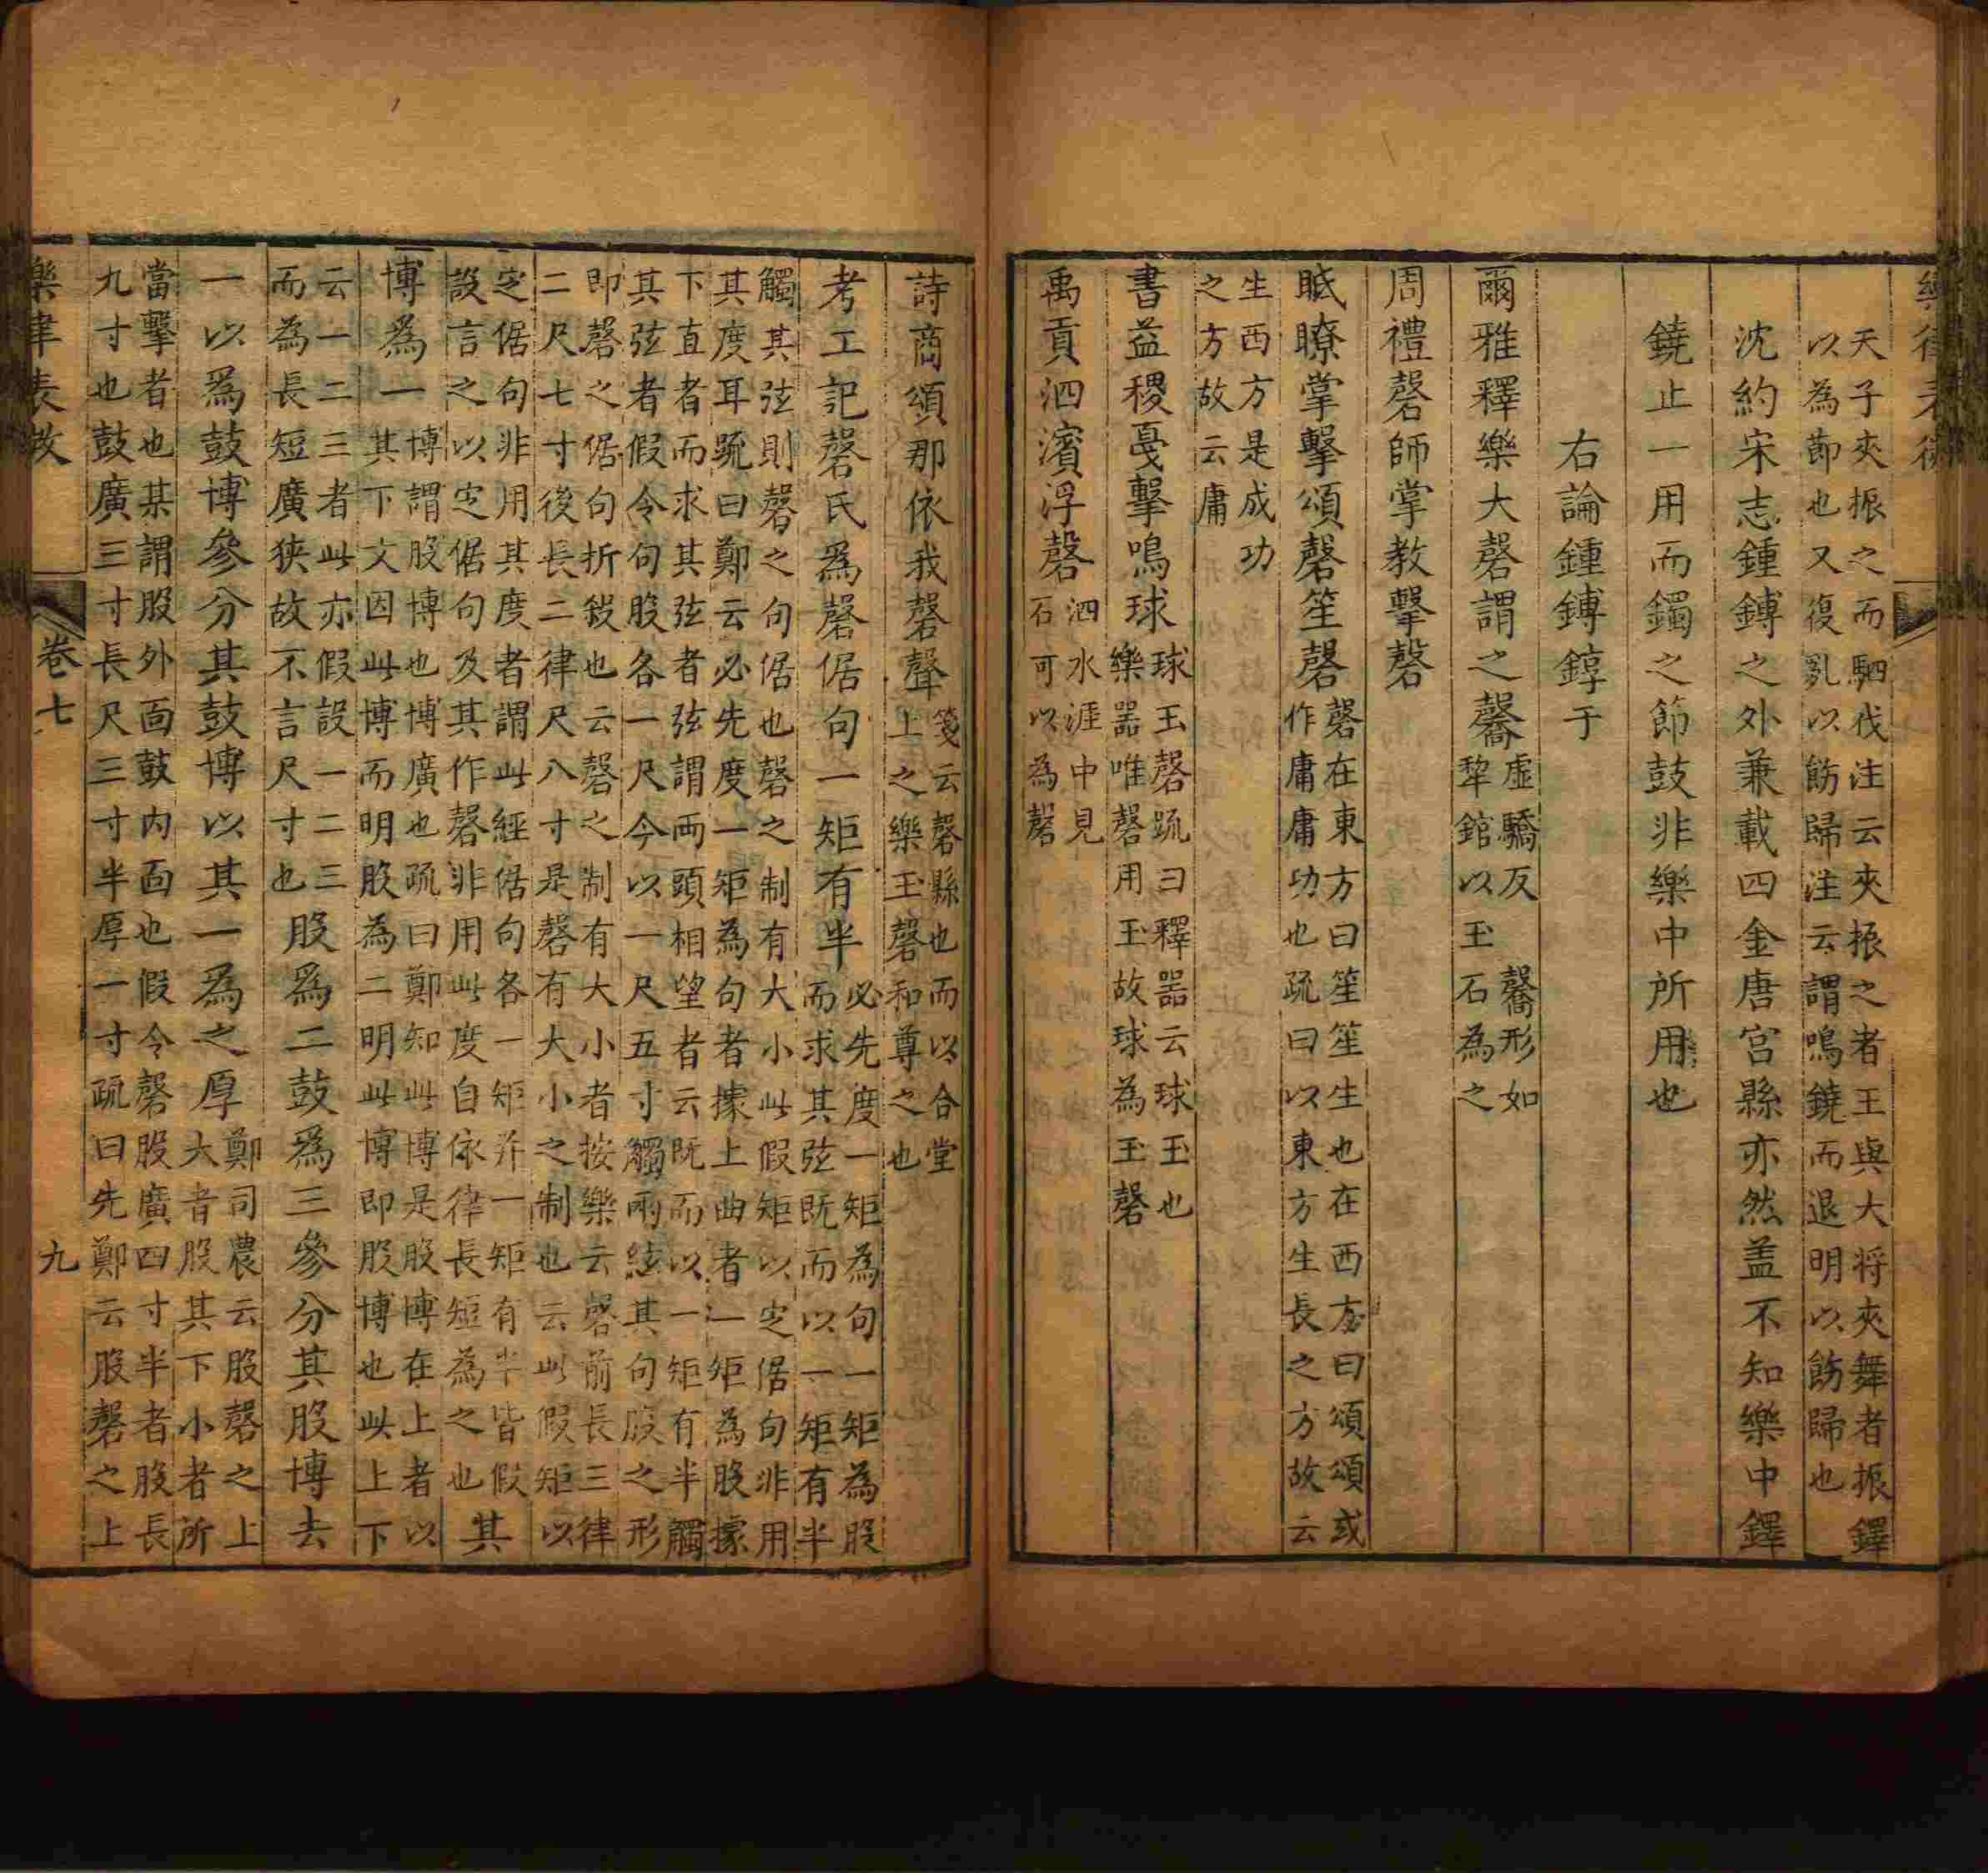 天子夾振之而駟伐注云夾振之者王與大将夾舞者振鐸
以為節也又復亂以飭歸注云謂鳴鐃而退明以飭歸也
沈約宋志鍾鎛之外兼載四金唐宮縣亦然盖不知樂中鐸
鐃止一用而鐲之節鼓非樂中所用也
右論鍾鎛錞于
爾雅釋樂大磬謂之毊虛驕反 毊形如
犂錧以玉石為之
周禮磬師掌教擊磬
眂瞭掌擊頌磬笙磬磬在東方曰笙笙生也在西方曰頌頌或
作庸庸功也疏曰以東方生長之方故云
生西方是成功
之方故云庸
書益稷戞擊鳴球球玉磬疏曰釋器云球玉也
樂器唯磬用玉故球為玉磬
禹貢泗濱浮磬泗水涯中見
石可以為磬
詩商頌那依我磬聲箋云磬縣也而以合堂
上之樂玉磬和尊之也
考工記磬氏爲磬倨句一矩有半必先度一矩為句一矩為股
而求其弦既而以一矩有半
觸其弦則磬之句倨也磬之制有大小此假矩以定倨句非用
其度耳疏曰鄭云必先度一矩為句者據上曲者一矩為股據
下直者而求其弦者弦謂両頭相望者云既而以一矩有半觸
其弦者假令句股各一尺今以一尺五寸觸兩絃其句股之形
即磬之倨句折殺也云磬之制有大小者按樂云磬前長三律
二尺七寸後長二律尺八寸是磬有大小之制也云此假矩以
定倨句非用其度者謂此經倨句各一矩并一矩有半皆假
設言之以定倨句及其作磬非用此度自依律長短為之也其
博爲一博謂股博也博廣也疏曰鄭知此博是股博在上者以
其下文因此博而明股為二明此博即股博也此上下
云一二三者此亦假設一二三
而為長短廣狹故不言尺寸也股爲二鼓爲三參分其股博去
一以爲鼓博參分其鼓博以其一爲之厚鄭司農云股磬之上
大者股其下小者所
當擊者也某謂股外面鼓內面也假令磬股廣四寸半者股長
九寸也鼓廣三寸長尺三寸半厚一寸疏曰先鄭云股磬之上
卷七
九